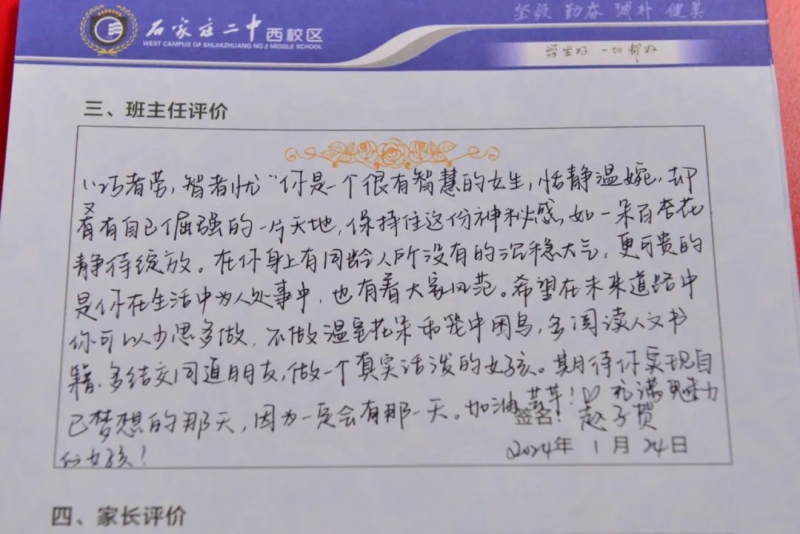 石家庄二中西校区
WEST CAMPUS OF SHIJIAZHUANG NO.2 MIDDLE SCHOOL
坚毅 勤奋 诚朴 健美
学生好 一切都好
三、班主任评价
"巧者劳，智者忧"你是一个很有智慧的女生，恬静温婉，却
又
有自己倔强的一片天地，保持住这份神秘感，如一朵百合花
静待绽放。在你身上有同龄人所没有的沉稳大气，更可贵的
是你在生活中为人处事中，也有着大家风范。希望在未来道路中
你可以少思多做，不做温室花朵和笼中困鸟，多阅读人文书
籍，多结交同道朋友，做一个真实活泼的女孩。期待你实现自
己梦想的那天，因为一定会有那一天。加油！充满魅力
的女孩！
签名：赵子贺
2024年 1月 24日
四、家长评价